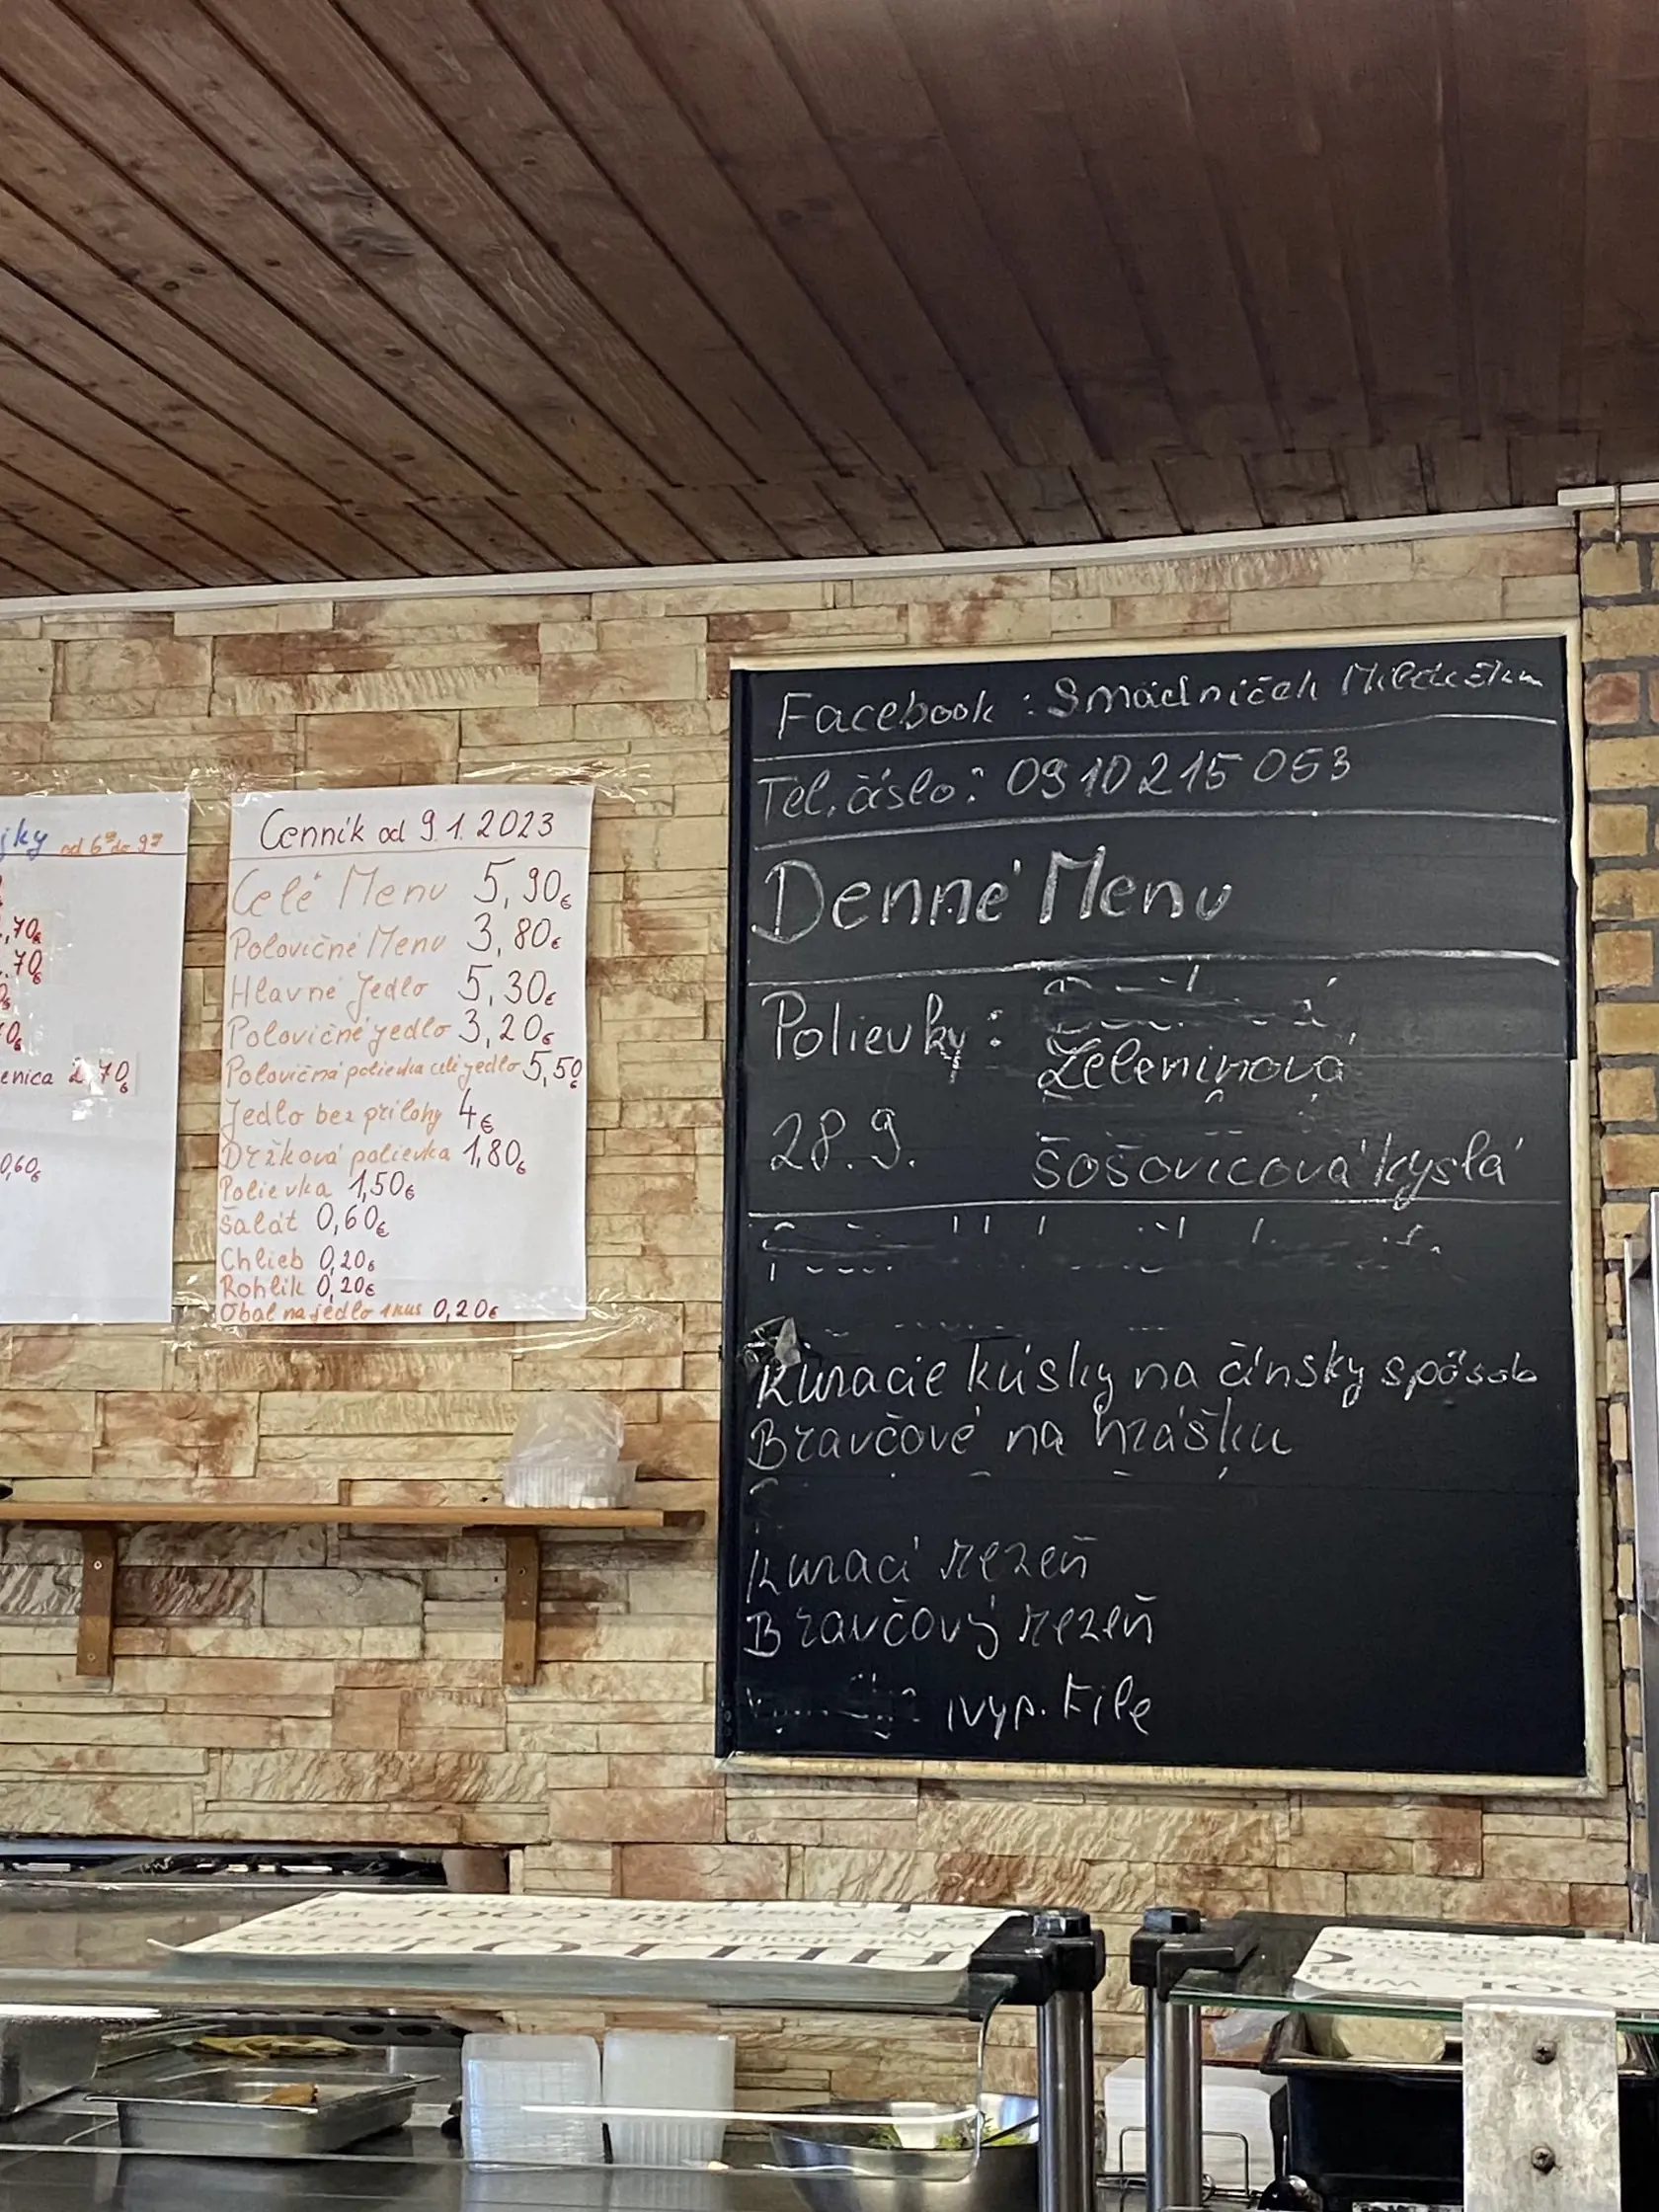 jky od 6⁰⁰ do 9⁰⁰
,70€
,70€
0€
enica 2,70€
0,60€
Cenník od 9.1.2023
Celé Menu 5,90€
Polovičné Menu 3,80€
Hlavné Jedlo 5,30€
Polovičné jedlo 3,20€
Polovičná polievka celé jedlo 5,50
Jedlo bez prílohy 4€
Držková polievka 1,80€
Polievka 1,50€
Šalát 0,60€
Chlieb 0,20€
Rohlík 0,20€
Obal na jedlo 1 kus 0,20€
Facebook: Smädníček
Tel. číslo: 0910 215 053
Denné Menu
Polievky:
Zeleninová
28.9. Šošovicová kyslá
Kuracie kúsky na čínsky spôsob
Bravčové na hrášku
Kurací rezeň
Bravčový rezeň
vyp. file